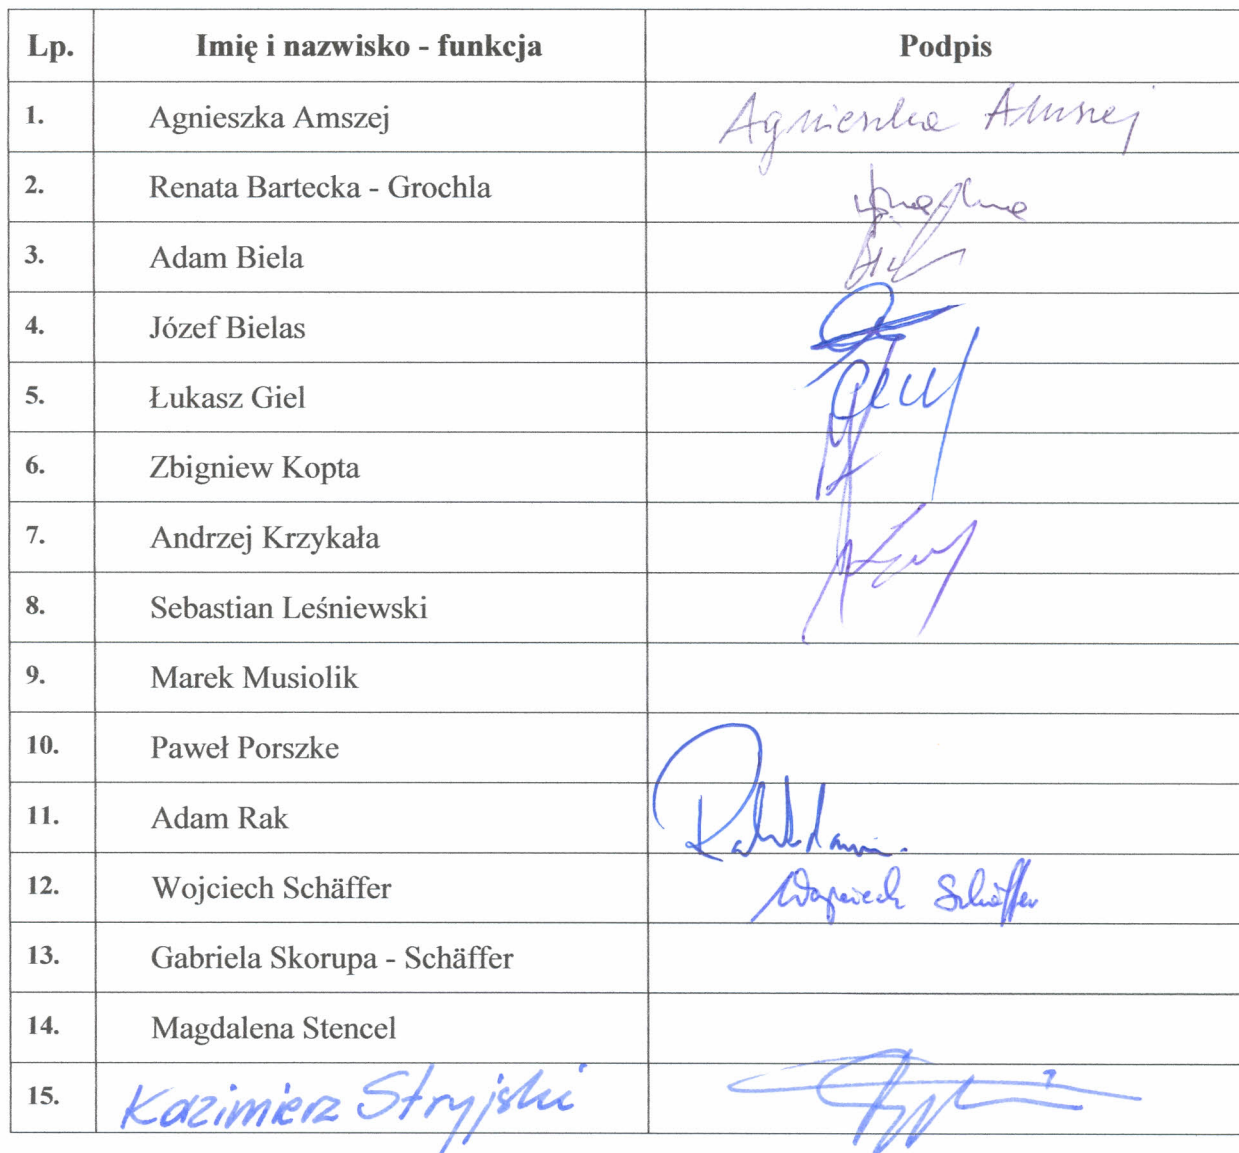 Lp. Imię i nazwisko - funkcja Podpis
1. Agnieszka Amszej Agnieszka Amszej
2. Renata Bartecka - Grochla
3. Adam Biela
4. Józef Bielas
5. Łukasz Giel
6. Zbigniew Kopta
7. Andrzej Krzykała
8. Sebastian Leśniewski
9. Marek Musiolik
10. Paweł Porszke
11. Adam Rak
12. Wojciech Schäffer Wojciech Schäffer
13. Gabriela Skorupa - Schäffer
14. Magdalena Stencel
15. Kazimierz Stryjski